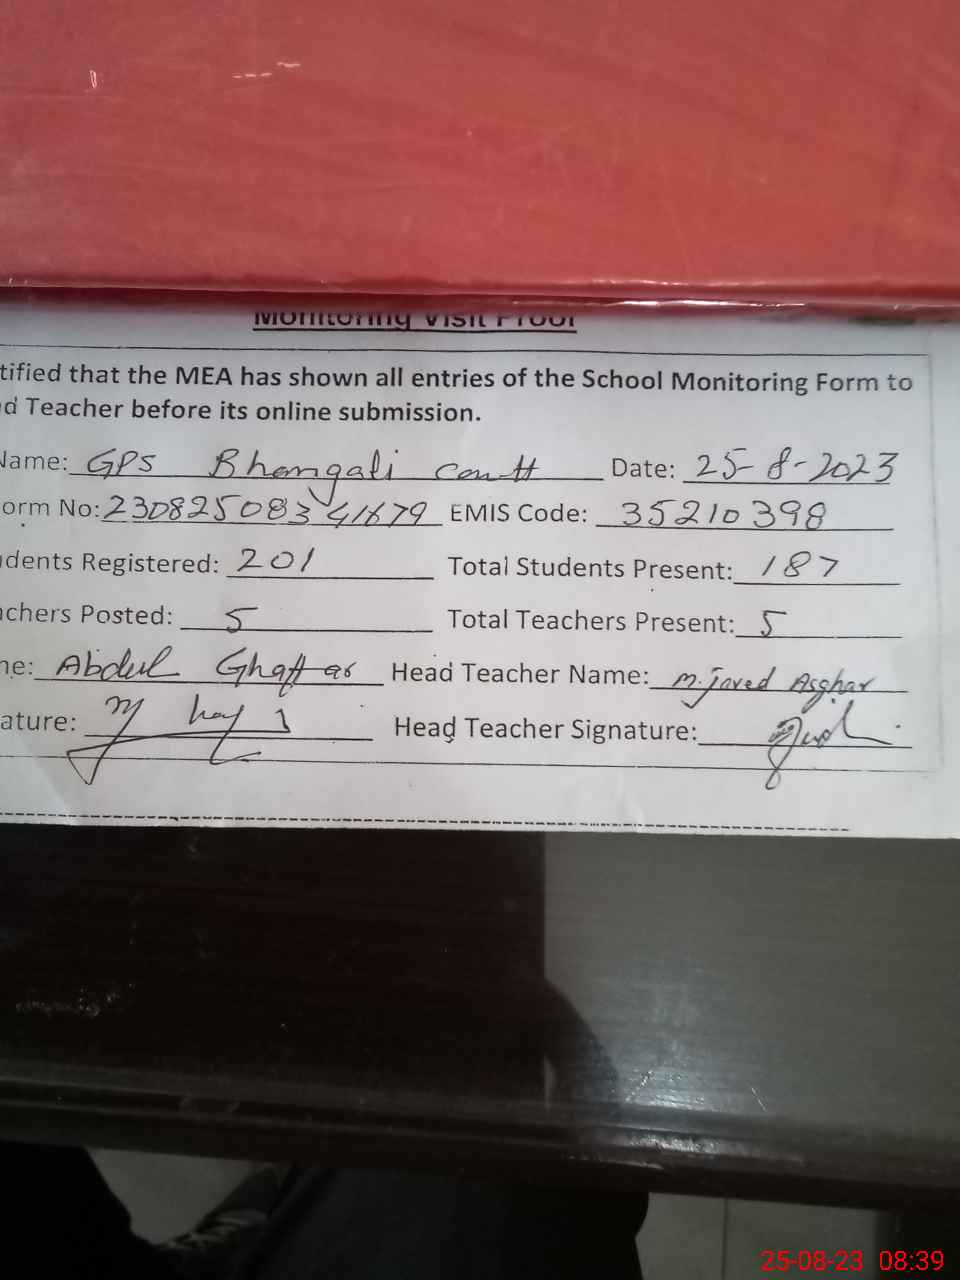 Monitoring Visit Proof
tified that the MEA has shown all entries of the School Monitoring Form to
d Teacher before its online submission.
Name: GPS Bhangali cantt Date: 25-8-2023
orm No: 23082508341679 EMIS Code: 35210398
dents Registered: 201 Total Students Present: 187
chers Posted: 5 Total Teachers Present: 5
ne: Abdul Ghaffar Head Teacher Name: M. javed Asghar
ature: Head Teacher Signature:
25-08-23 08:39